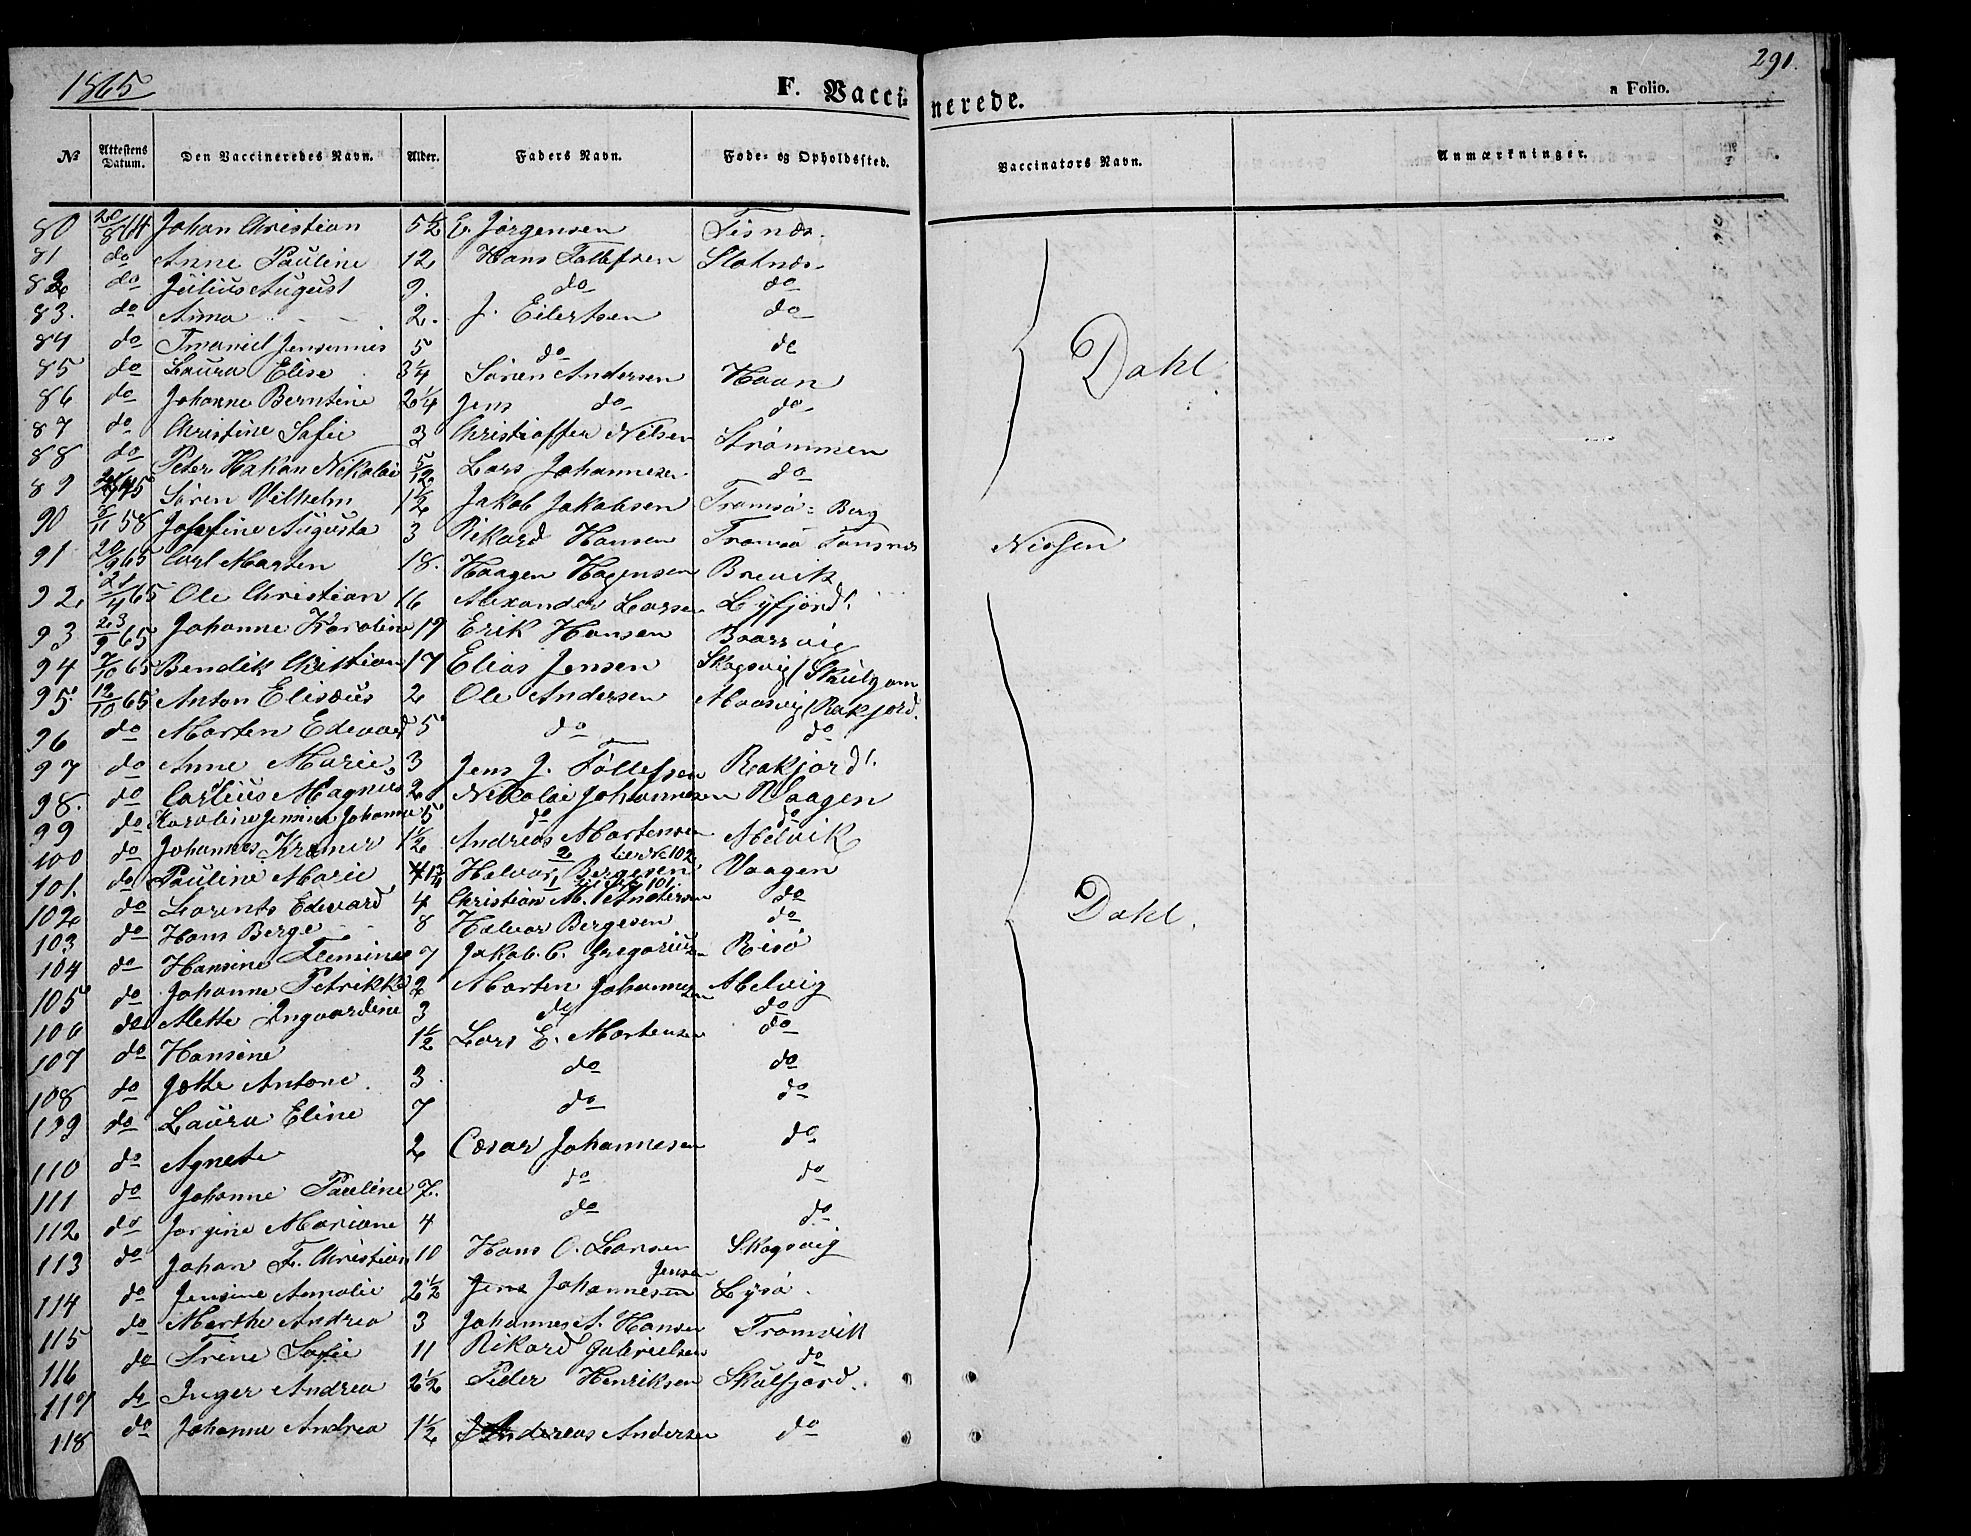 1865
F. Vaccinerede.
a Folio.
291.
№ Attestens Datum. Den Vaccineredes Navn. Alder. Faders Navn. Føde- og Opholdssted. Vaccinators Navn. Anmærkninger.
80 20/8 64 Johan Christian 5½ E. Jørgensen Tisnæs.
81 do Anne Pauline 12 Hans Tollefsen Slotnæs.
82 do Julius August 9. do do
83. do Anna 2. J. Eilertsen do
84 do Imaniel Jensenius 5 do do
85 do Laura Elise 3¼ Sören Andersen Haan
86 do Johanne Berntine 2¼ Jens do do
87 do Christine Sofie 3 Christoffer Nilsen Strömmen
88 do Peter Hakon Nikolai 5/12 Lars Johannesen do
Dahl
89 Sören Vilhelm 1½ Jakob Jakobsen Tromsö = Berg
90 58 Josefine Augusta 3 Rikard Hansen Tromsö Tonsnes Nissen
91 20/9 65 Carl Marten 18. Haagen Hagensen Brevik
92. 21/4 65 Ole Christian 16 Alexander Larsen Lyfjord
93 23/9 65 Johanne Karoline 19 Erik Hansen Baarsvig
94 7/10 65 Bendik Christian 17 Elias Jensen Skogsvig / Skulgam
95. 12/10 65 Anton Elisæus 2 Ole Andersen Maasvig / Rakfjord.
96 do Morten Edevard 5 do do
97 do Anne Marie 3 Jens J. Tollefsen Rakfjord
98. do Carlius Magnus 2 Nikolai Johannesen Vaagen
99 do Karoline Jensine Johanne 5 do do
100 do Johannes Kremer 1½ Andreas Mortensen Melvik
2 til № 102
101. do Pauline Marie Helvor Bergesen Vaagen
1 til № 101
102 do Lorents Edevard 4 Christian M. Andersen do
103 do Hans Berge 8 Halvor Bergesen do
104 do Hansine Flemine 7 Jakob C. Gregoriusen Risö
105 do Johanne Petrikke 2 Morten Johannesen Melvig
106 do Mette Ingvardine 3 do do
107 do Hansine 1½ Lars E. Mortensen do
108 do Jette Antone. 3. do do
109 do Laura Eline 7 do do
110 do Agnete 2 Cæsar Johannesen do
111 do Johanne Pauline 7. do do
112 do Jorgine Mariane 4 do do
113 do Johan F. Christian 10 Hans O. Larsen Skogsvig
114 do Jensine Amalie 2½ Jens Johannesen Jensen Lysö.
115 do Marthe Andrea 3 Johannes A. Hansen Tromvik
116 do Trine Sofie 11 Rikard Gabrielsen do
117 do Inger Andrea 2½ Peder Henriksen Skulsfjord.
118 do Johanne Andrea 1½ Andreas Andersen do
Dahl.